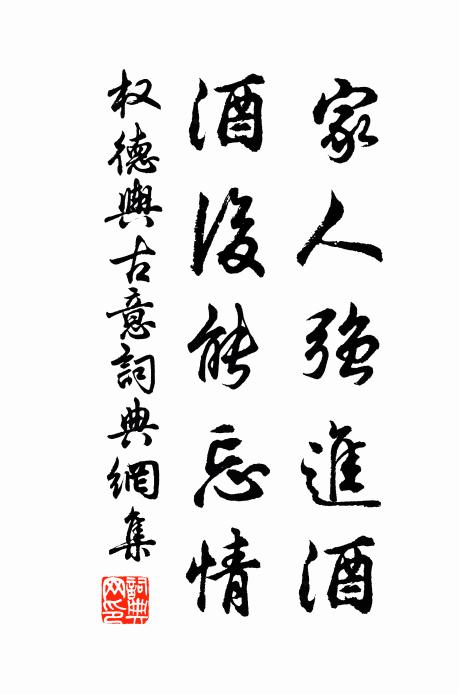 家人強進酒
酒後能忘情
权德輿古意詞典網集
詞典网印